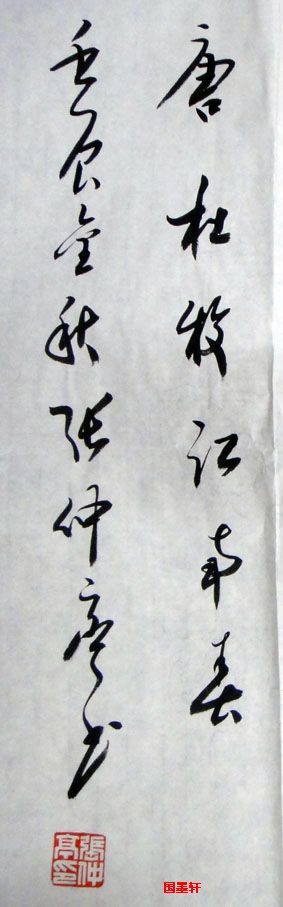 唐杜牧江南春
壬辰金秋张仲亭书
張仲亭印
国墨轩